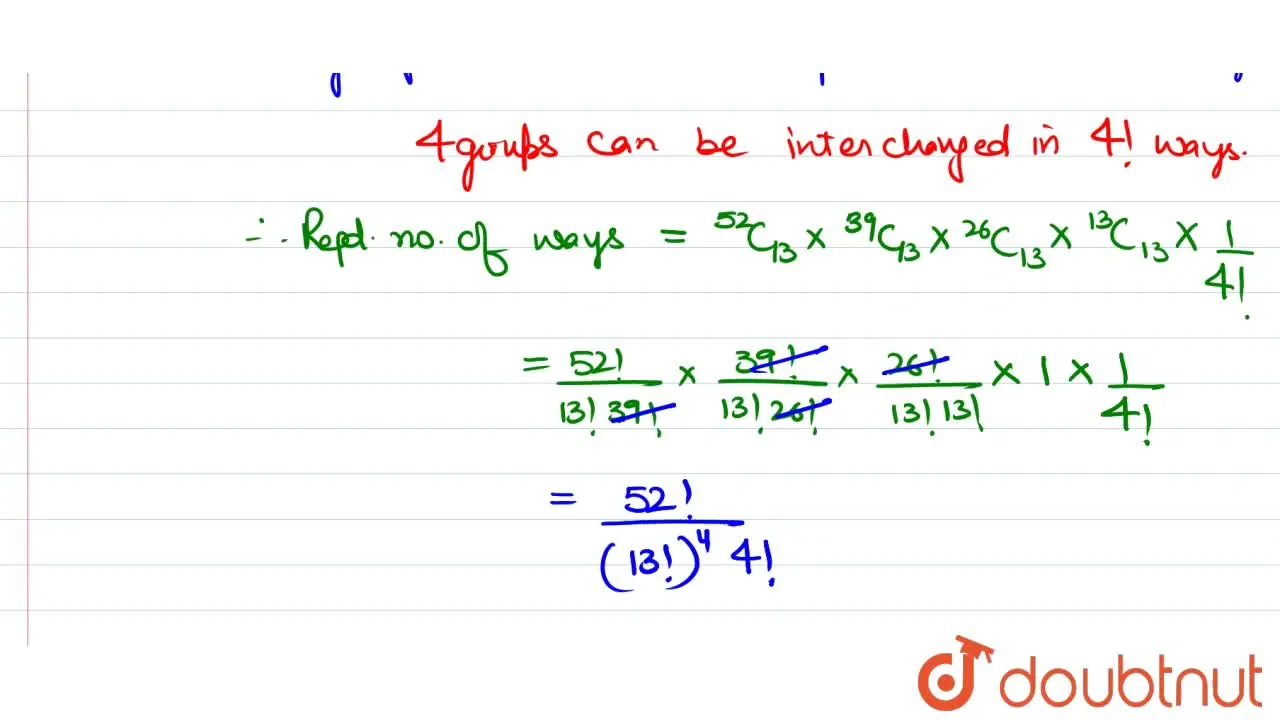 4 groups can be interchanged in 4! ways.
∴ Reqd. no. of ways = ⁵²C₁₃ × ³⁹C₁₃ × ²⁶C₁₃ × ¹³C₁₃ × 1/4!
= 52!/(13! 39!) × 39!/(13! 26!) × 26!/(13! 13!) × 1 × 1/4!
= 52!/((13!)⁴ 4!)
doubtnut